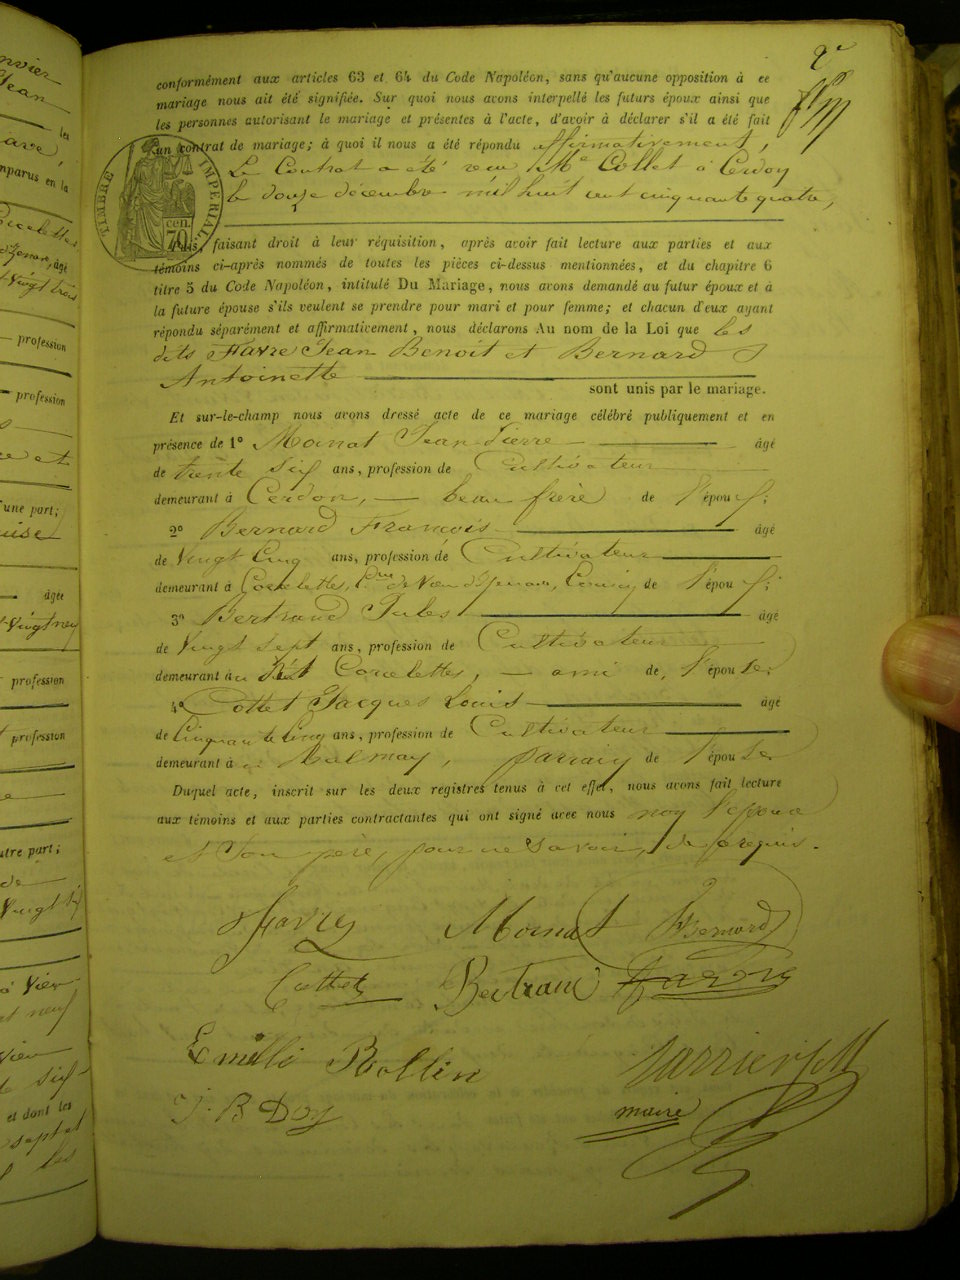 conformément aux articles 63 et 64 du Code Napoléon, sans qu'aucune opposition à ce
mariage nous ait été signifiée. Sur quoi nous avons interpellé les futurs époux ainsi que
les personnes autorisant le mariage et présentes à l'acte, d'avoir à déclarer s'il a été fait
un contrat de mariage; à quoi il nous a été répondu affirmativement,
Le Contrat a été recu Me Collet à Cerdon
le douze décembre mil huit cent cinquante quatre,
TIMBRE IMPERIAL
70 cen.
Puis, faisant droit à leur réquisition, après avoir fait lecture aux parties et aux
témoins ci-après nommés de toutes les pièces ci-dessus mentionnées, et du chapitre 6
titre 5 du Code Napoléon, intitulé Du Mariage, nous avons demandé au futur époux et à
la future épouse s'ils veulent se prendre pour mari et pour femme; et chacun d'eux ayant
répondu séparément et affirmativement, nous déclarons Au nom de la Loi que les
dits Favre Jean Benoit et Bernard
Antoinette
sont unis par le mariage.
Et sur-le-champ nous avons dressé acte de ce mariage célébré publiquement et en
présence de 1º Moinat Jean Pierre âgé
de trente six ans, profession de Cultivateur
demeurant à Cerdon, beau frère de l'époux;
2º Bernard François âgé
de Vingt Cinq ans, profession de Cultivateur
demeurant à Corcelettes, Cne de Vieu d'Izenave, Cousin de l'époux;
3º Bertrand Jules âgé
de Vingt sept ans, profession de Cultivateur
demeurant au dit Corcelettes, ami de l'épouse
4º Cottet Jacques Louis âgé
de Cinquante Cinq ans, profession de Cultivateur
demeurant à parrain de l'épouse
Duquel acte, inscrit sur les deux registres tenus à cet effet, nous avons fait lecture
aux témoins et aux parties contractantes qui ont signé avec nous non l'épouse
et son père, pour ne savoir, de ce requis.
Favre Moinat Bernard
Cottet Bertrand Favre
Emilli Rollin
J. B. Doy
maire